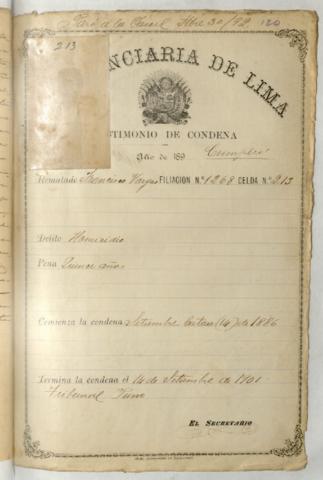 Pasó a la Cárcel Stbre 30/92 120
213
NCIARIA DE LIMA
TIMONIO DE CONDENA
Año de 189
Cumplió
Rematado Francisco Vargas FILIACION N.º 1268 CELDA N.º 213
Delito Homicidio
Pena Quince años
Comienza la condena Setiembre Catorce (14) de 1886
Termina la condena el 14 de Setiembre de 1901
Tribunal Puno
EL SECRETARIO